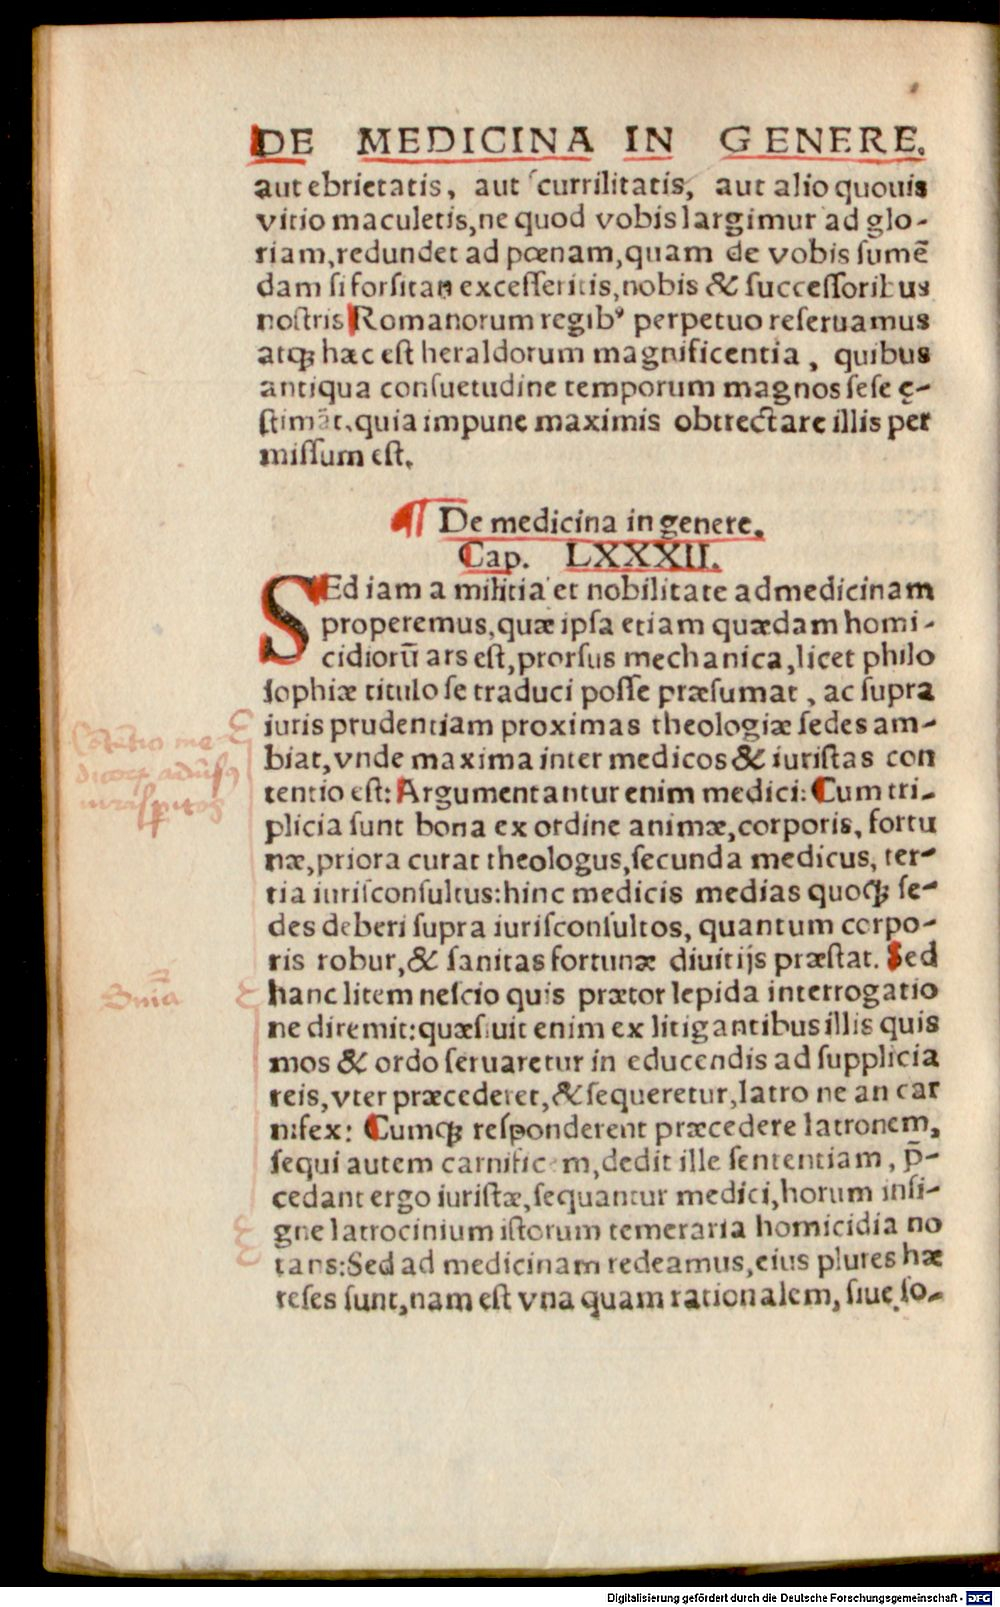 DE MEDICINA IN GENERE.
aut ebrietatis, aut scurrilitatis, aut alio quouis
vitio maculetis, ne quod vobis largimur ad glo-
riam, redundet ad pœnam, quam de vobis sumē
dam si forsitan excesseritis, nobis & successoribus
nostris Romanorum regibꝰ perpetuo reseruamus
atqꝫ hæc est heraldorum magnificentia, quibus
antiqua consuetudine temporum magnos sese ę-
stimāt, quia impune maximis obtrectare illis per
missum est.
¶ De medicina in genere.
Cap. LXXXII.
SEd iam a militia et nobilitate ad medicinam
properemus, quæ ipsa etiam quædam homi-
cidiorū ars est, prorsus mechanica, licet philo
sophiæ titulo se traduci posse præsumat, ac supra
iuris prudentiam proximas theologiæ sedes am-
biat, vnde maxima inter medicos & iuristas con
tentio est: Argumentantur enim medici: Cum tri-
plicia sunt bona ex ordine animæ, corporis, fortu
næ, priora curat theologus, secunda medicus, ter-
tia iurisconsultus: hinc medicis medias quoqꝫ se-
des deberi supra iurisconsultos, quantum corpo-
ris robur, & sanitas fortunæ diuitijs præstat. Sed
hanc litem nescio quis prætor lepida interrogatio
ne diremit: quæsiuit enim ex litigantibus illis quis
mos & ordo seruaretur in educendis ad supplicia
reis, vter præcederet, & sequeretur, latro ne an car
nifex: Cumqꝫ responderent præcedere latronem,
sequi autem carnificem, dedit ille sententiam, p̄-
cedant ergo iuristæ, sequantur medici, horum insi-
gne latrocinium istorum temeraria homicidia no
tans: Sed ad medicinam redeamus, eius plures hæ
reses sunt, nam est vna quam rationalem, siue so-
Digitalisierung gefördert durch die Deutsche Forschungsgemeinschaft - DFG